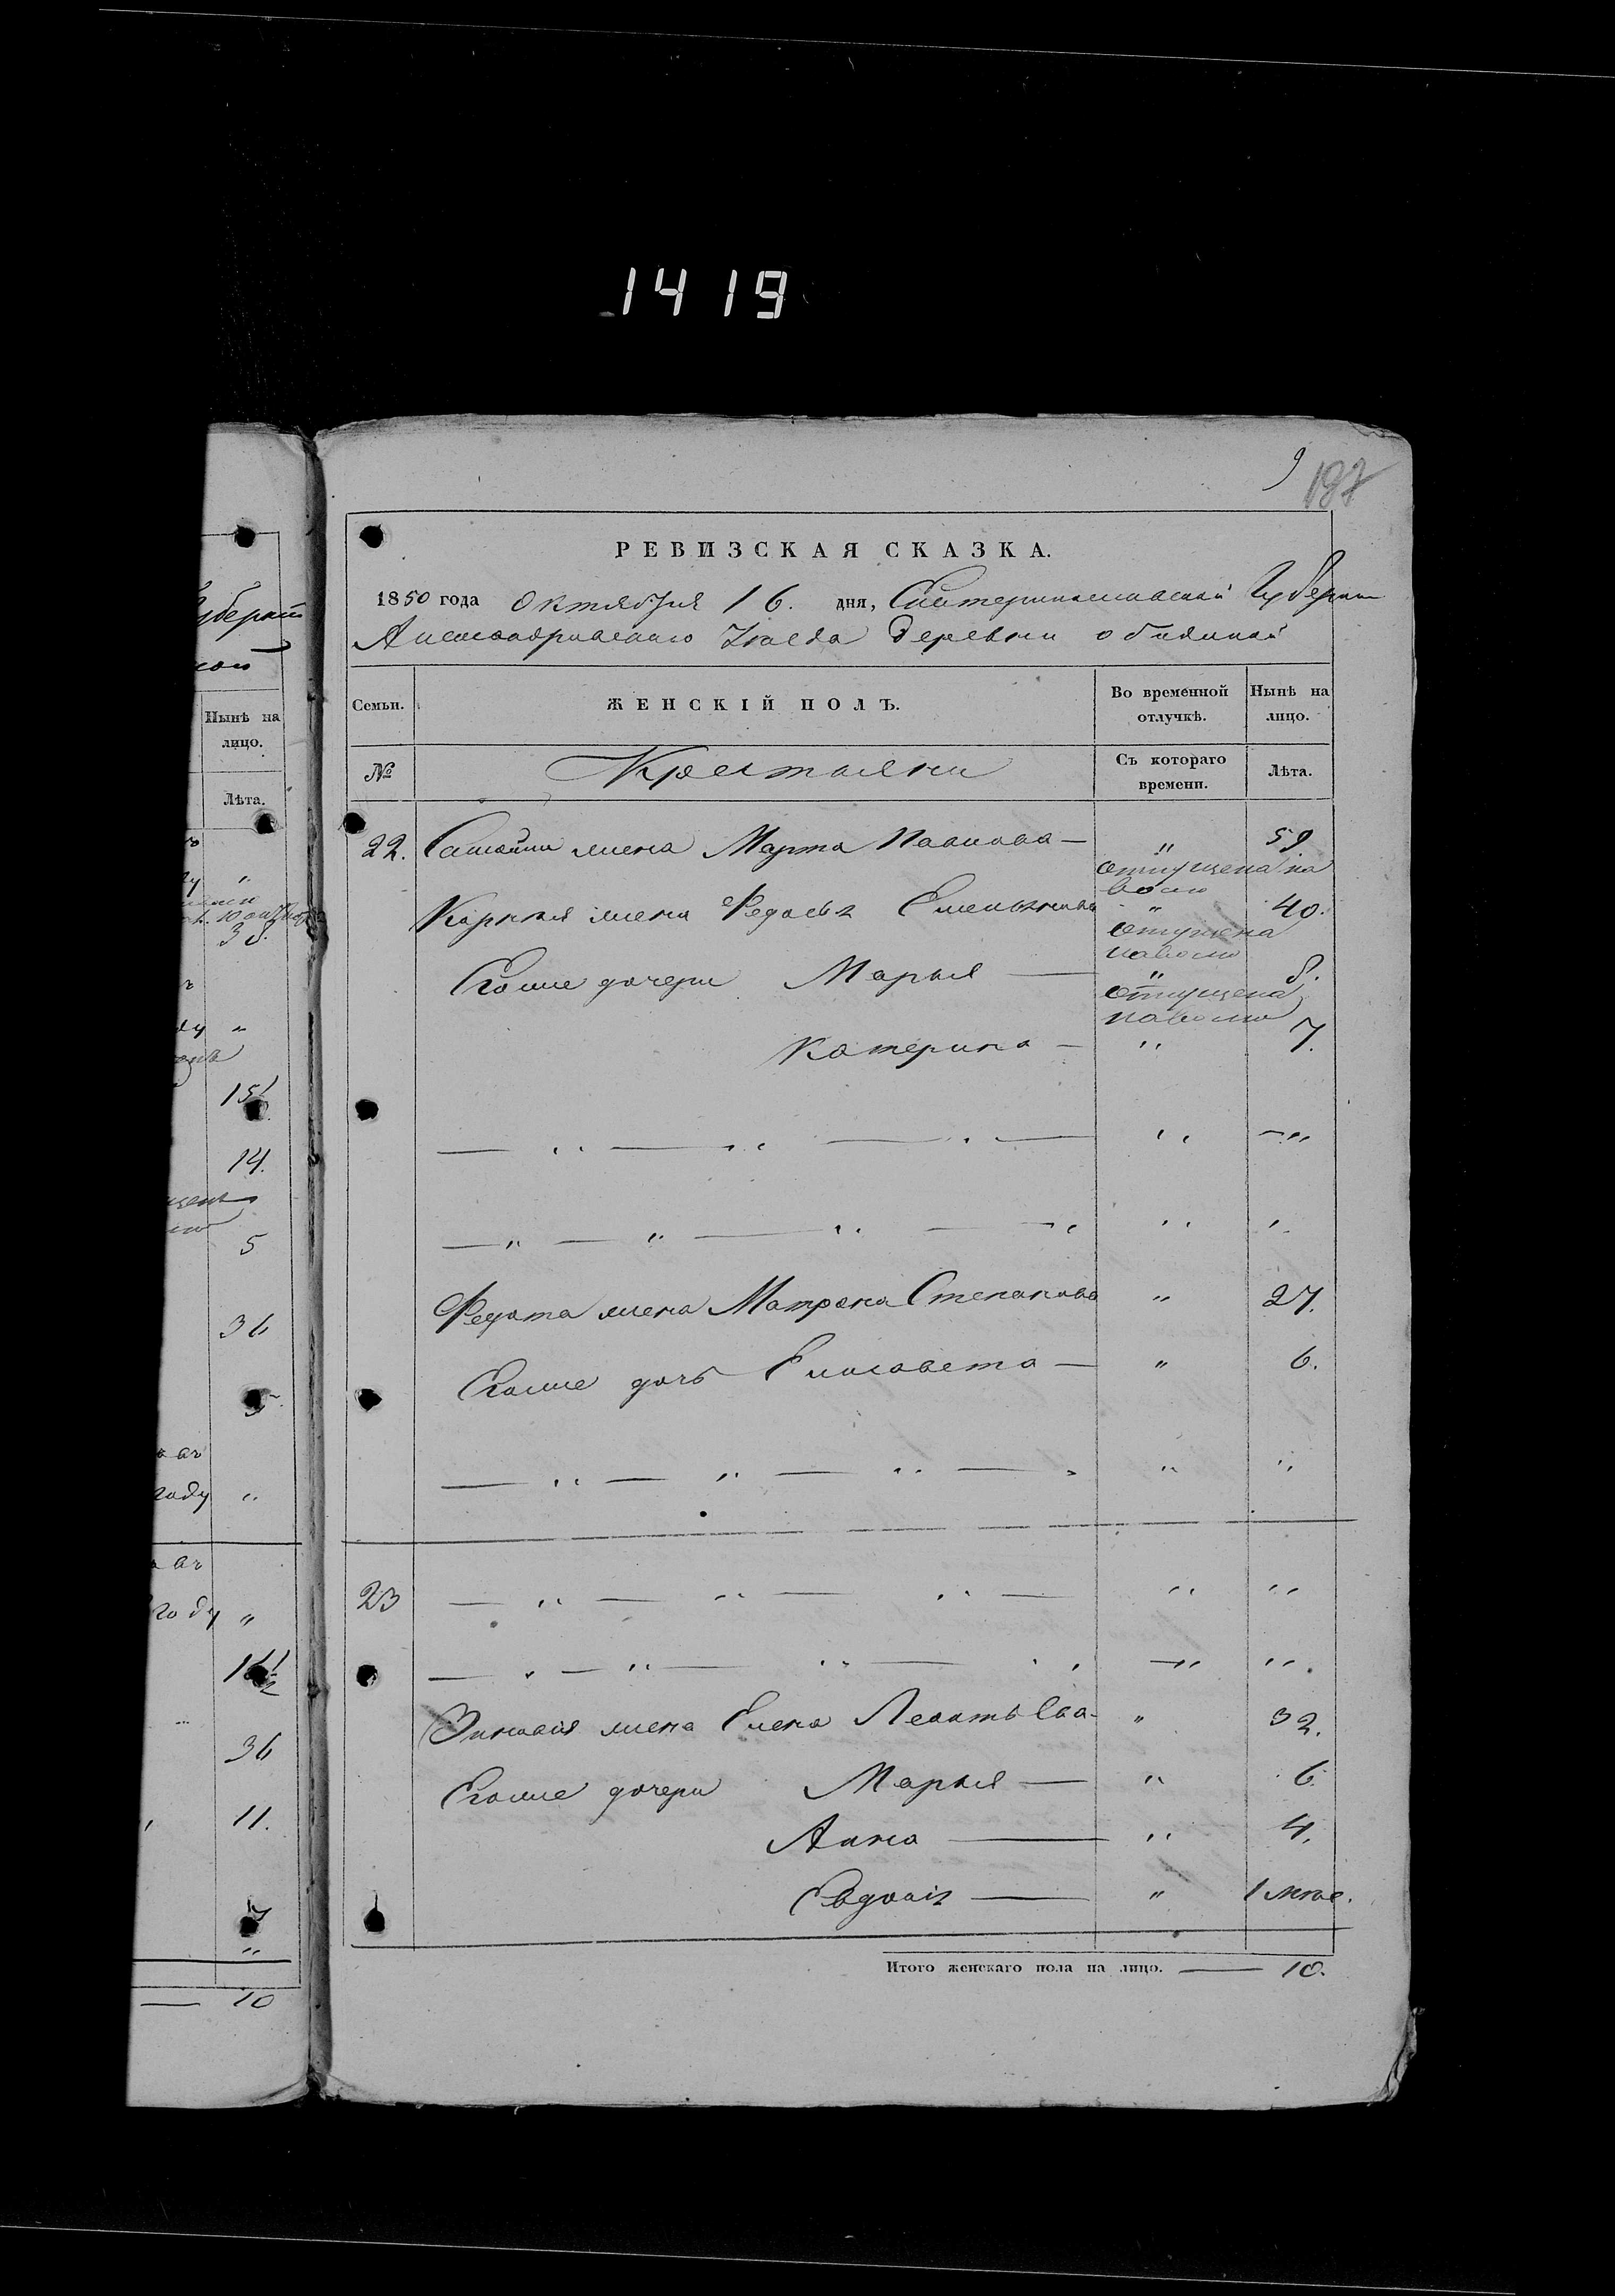 1419
9
187
РЕВИЗСКАЯ СКАЗКА.
1850 года Октября 16. дня, Екатеринославской Губернии
Александровскаго Уезда Деревни
Семьи.
ЖЕНСКІЙ ПОЛЪ.
Во временной отлучкѣ.
Нынѣ на лицо.
№
Крестьяни
Съ котораго времени.
Лѣта.
22. жена Марта Павлова — " 59
отпущена на волю
Карнея жена Федосья Емельянова " 40.
отпущена наволю
Егоже дочери Марья — " 8.
отпущена наволю
Катерина — " 7.
Федота жена Матрона Степанова " 27.
Егоже дочь Елисавета — " 6.
23
жена Елена Леонтьева - " 32.
Егоже дочери Марья — " 6.
Анна — " 4.
Евдокія — " 1 мѣс.
Итого женскаго пола на лицо. — 10.
Губерніи
Нынѣ на лицо.
Лѣта.
14.
5
36
году "
году "
36
11.
— 10